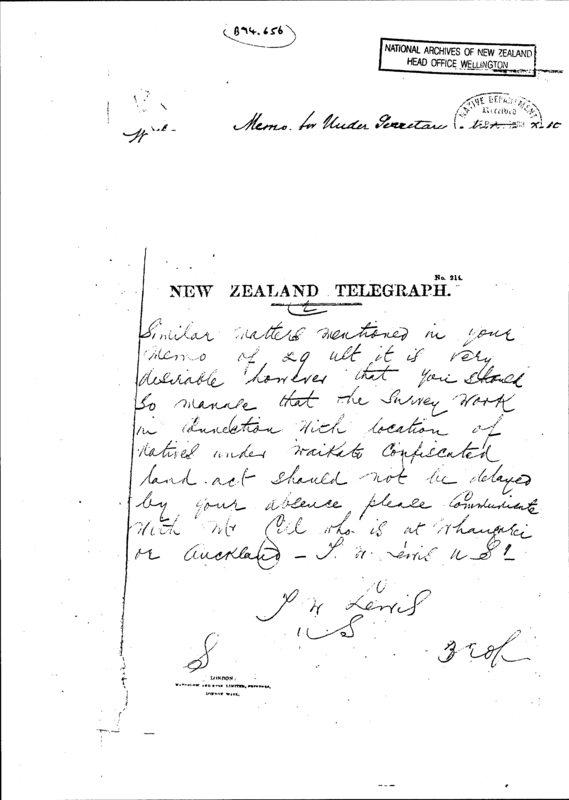 B94.656
NATIONAL ARCHIVES OF NEW ZEALAND
HEAD OFFICE WELLINGTON
NATIVE DEPARTMENT
Memo. for Under Secretary
No. 214.
NEW ZEALAND TELEGRAPH.
2
Similar matters mentioned in your
Memo of 29 ult it is very
desirable however that you should
so manage that the survey work
in connection with location of
Natives under Waikato Confiscated
land act should not be delayed
by your absence please Communicate
with Mr who is at Whangarei
or Auckland – T. W. Lewis U S
T W Lewis
U S
S
LONDON:
WATERLOW AND SONS LIMITED, PRINTERS,
LONDON WALL.